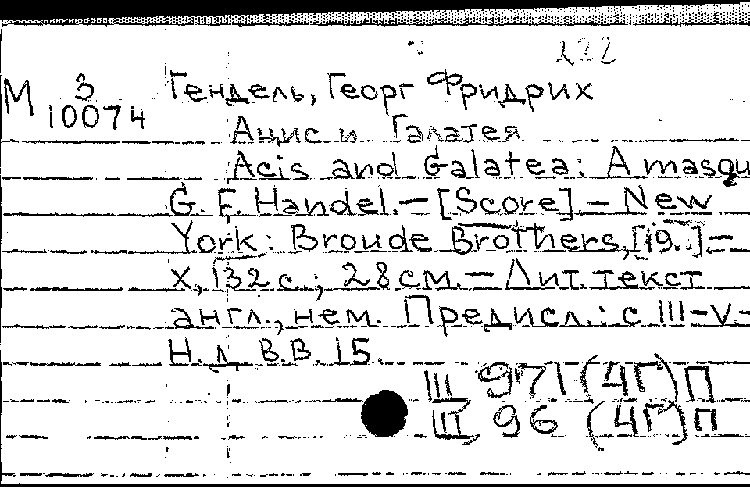 222
М 3 Гендель, Георг Фридрих
10074
Ацис и Галатея
Acis and Galatea: A masqu
G. F. Handel.– [Score].– New
York: Broude Brothers, [19..].–
X, 132 с.; 28 см.– Лит. текст
англ., нем. Предисл.: с III–V.–
Н. д. B.B. 15.
III 971 (4Г) П
III, 96 (4Г) П